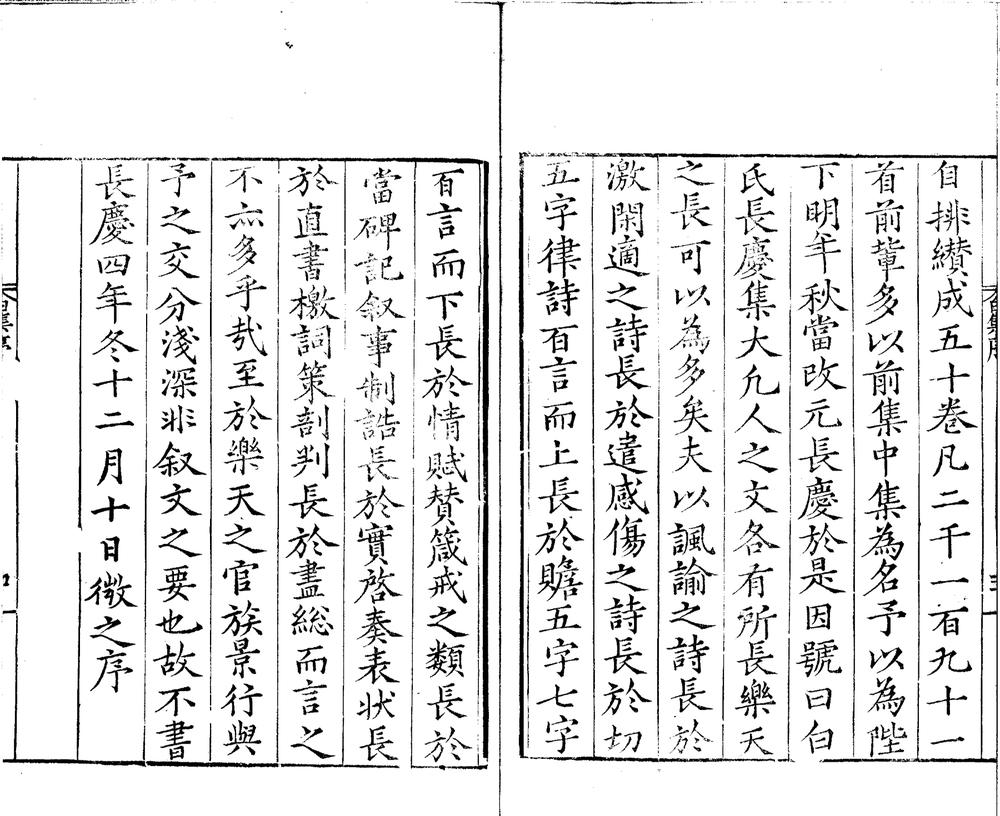 自排纉成五十卷凡二千一百九十一
首前輩多以前集中集為名予以為陛
下明年秋當改元長慶於是因號曰白
氏長慶集大凡人之文各有所長樂天
之長可以為多矣夫以諷諭之詩長於
激閑適之詩長於遣感傷之詩長於切
五字律詩百言而上長於贍五字七字
百言而下長於情賦賛箴戒之類長於
當碑記叙事制誥長於實啓奏表状長
於直書檄詞策剖判長於盡総而言之
不亦多乎㢤至於樂天之官族景行與
予之交分淺深非叙文之要也故不書
長慶四年冬十二月十日微之序